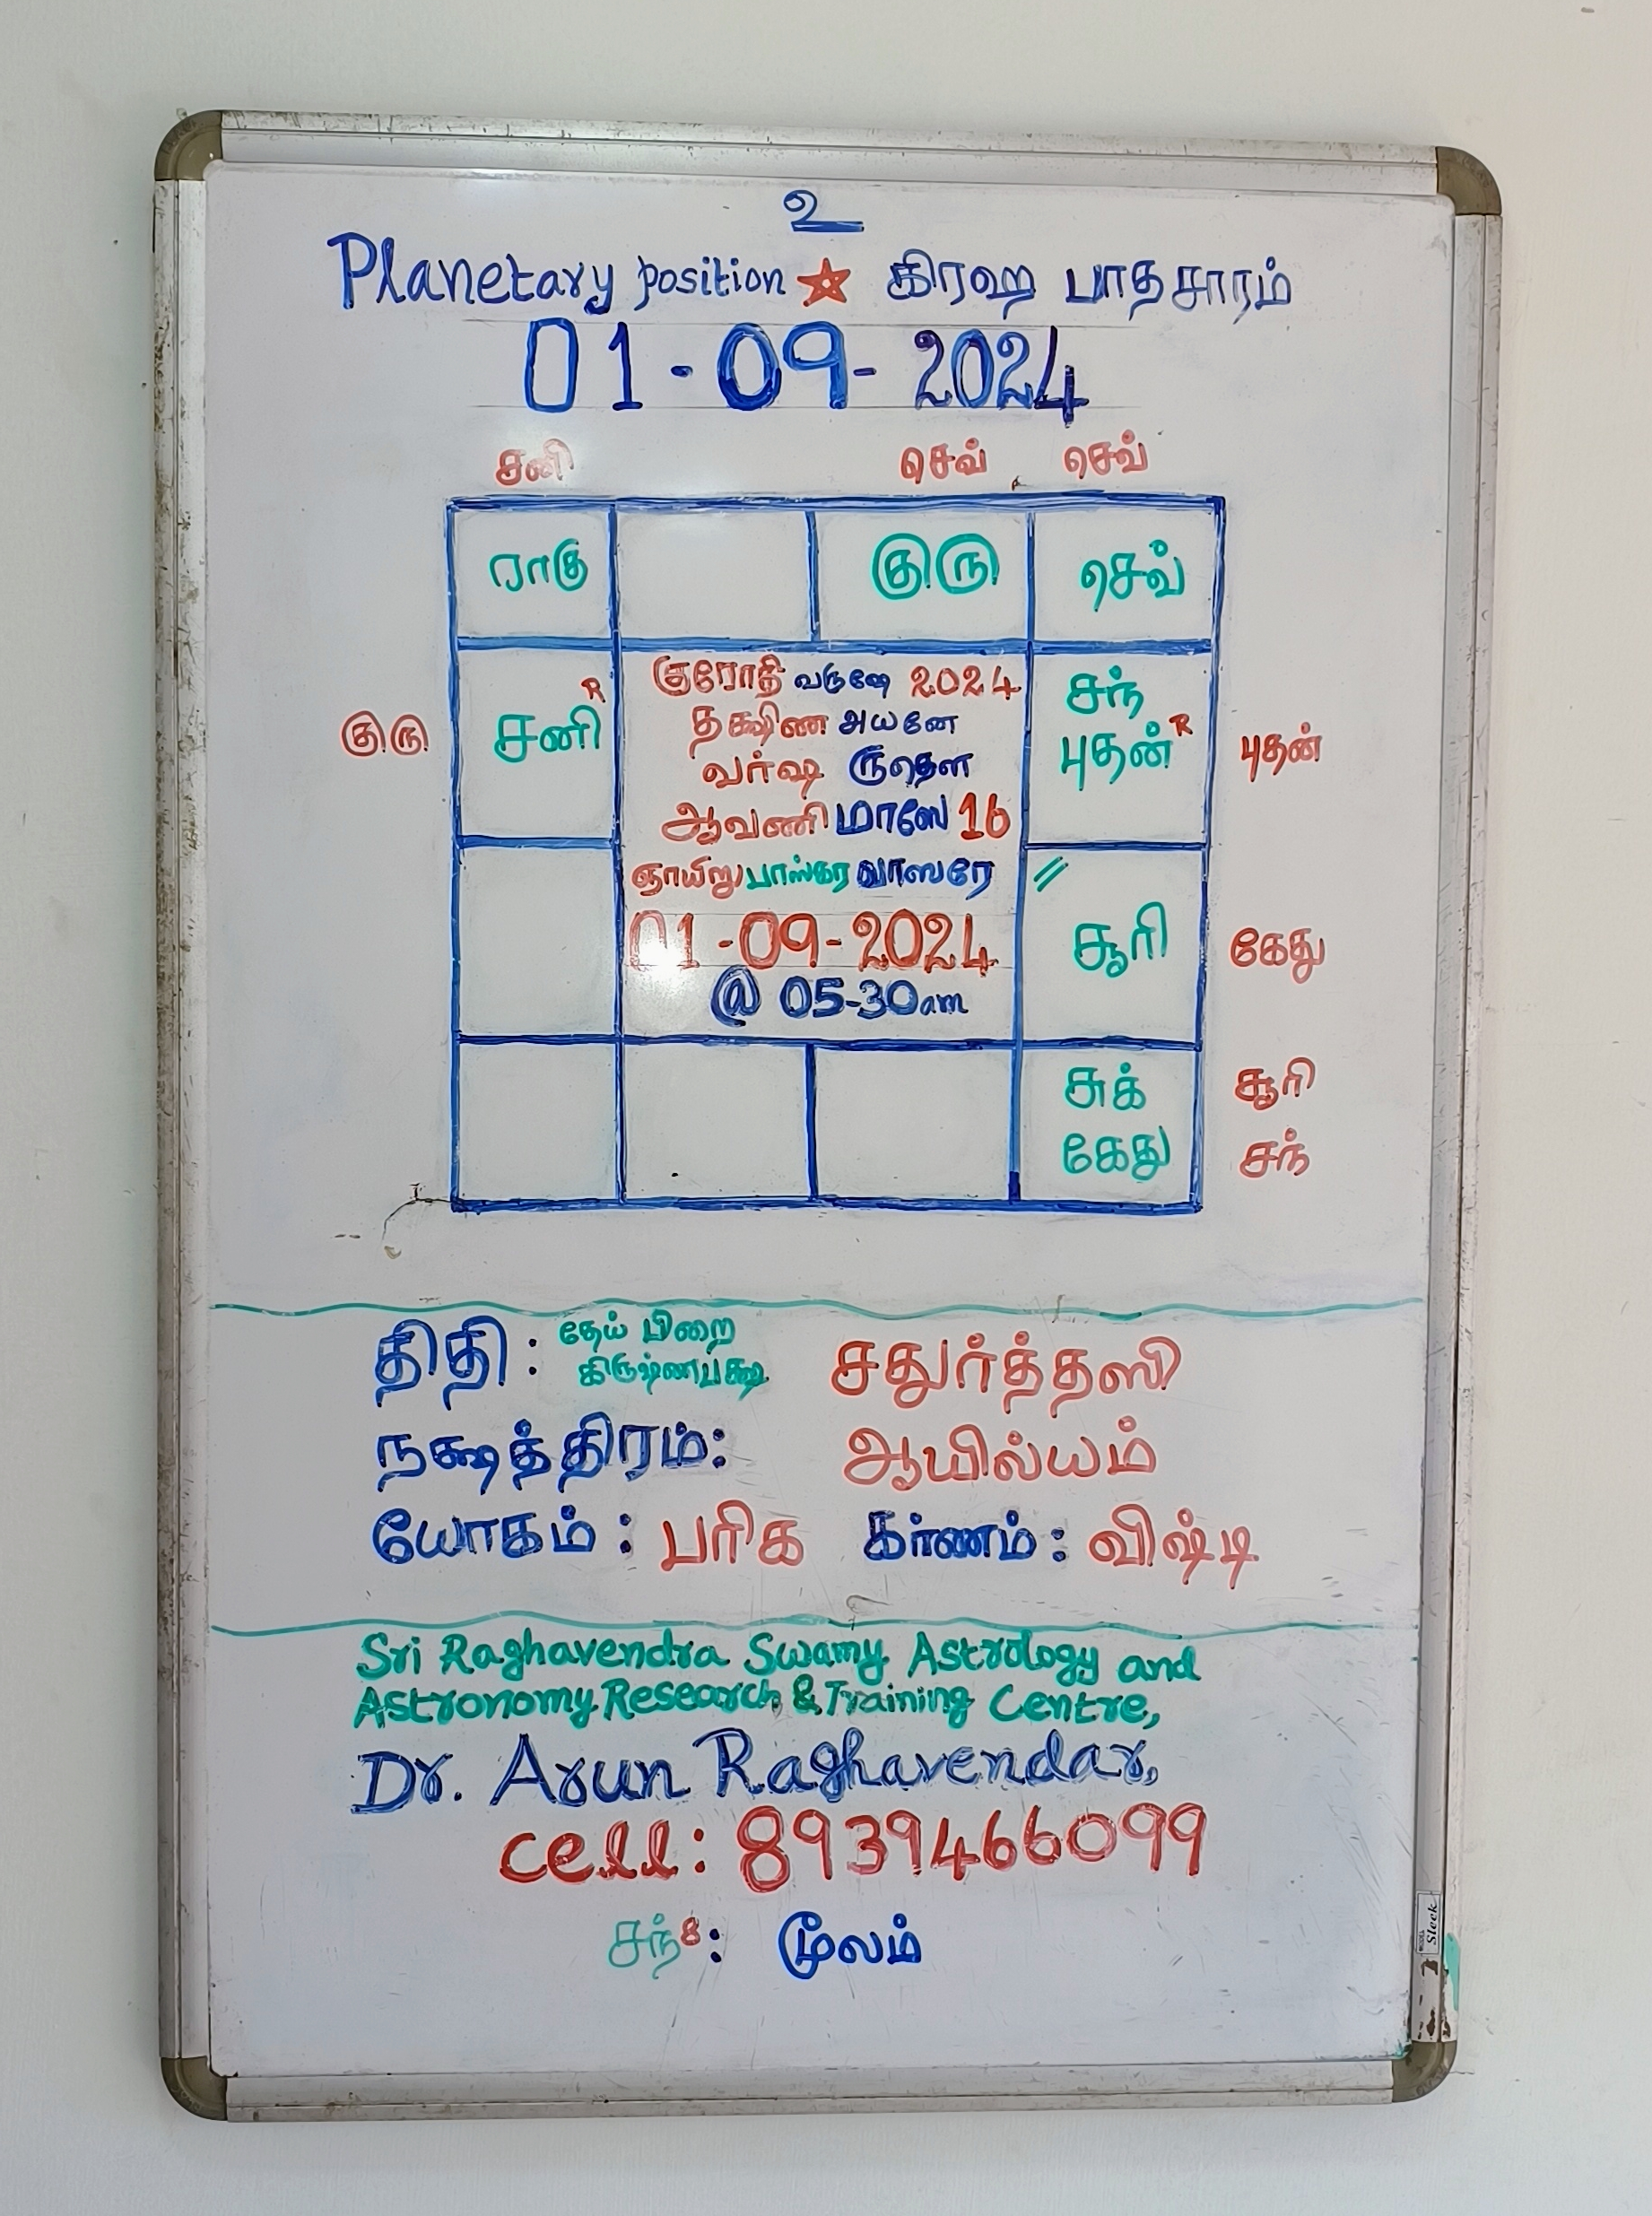 உ
Planetary position ☆ கிரஹ பாதசாரம்
01-09-2024
சனி செவ் செவ்
ராகு குரு செவ்
குரோதி வருஷே 2024
தக்ஷிண அயனே
வர்ஷ ருதௌ
ஆவணி மாஸே 16
ஞாயிறு பாஸ்கர வாஸரே
01-09-2024
@ 05-30am
குரு சனி R
சந்
புதன் R புதன்
சூரி கேது
சுக் சூரி
கேது சந்
திதி : தேய் பிறை
கிருஷ்ணபக்ஷ சதுர்த்தஸி
நக்ஷத்திரம்: ஆயில்யம்
யோகம் : பரிக கர்ணம் : விஷ்டி
Sri Raghavendra Swamy Astrology and
Astronomy Research & Training Centre,
Dr. Arun Raghavendar,
cell: 8939466099
சந் 8 : மூலம்
Sleek